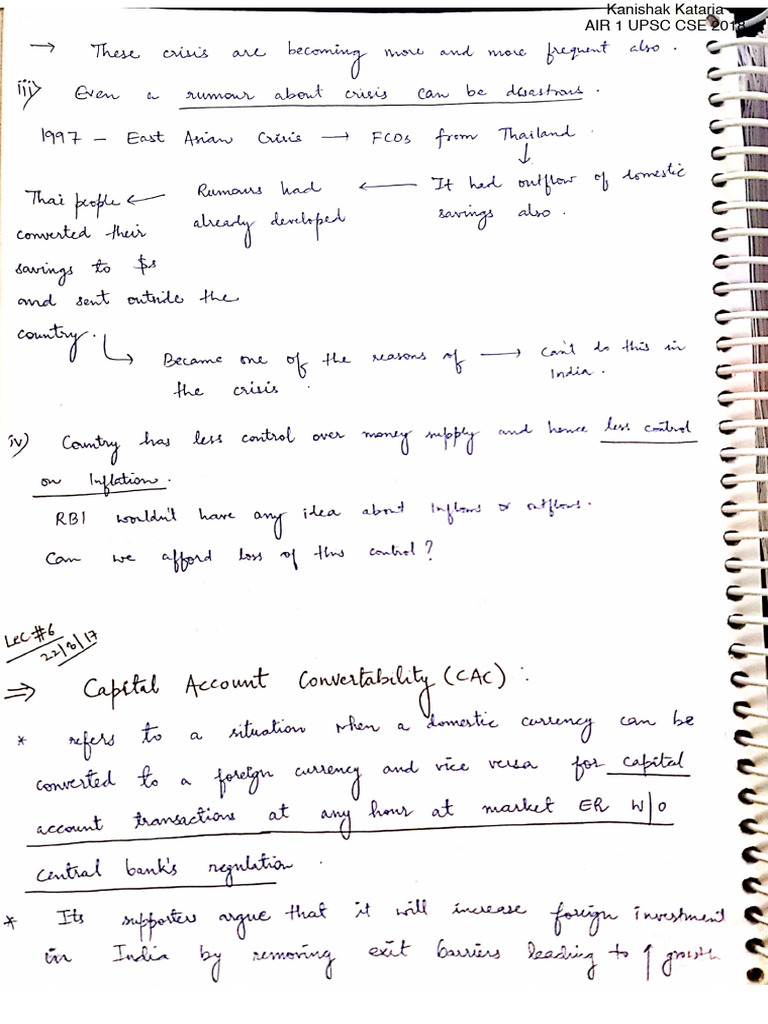 Kanishak Kataria
AIR 1 UPSC CSE 2018
→ These crisis are becoming more and more frequent also.
iii) Even a rumour about crisis can be disastrous.
1997 – East Asian Crisis → FCOs from Thailand.
↓
It had outflow of domestic
savings also.
← Rumours had
already developed
← Thai people
converted their
savings to $s
and sent outside the
country.
↳ Became one of the reasons of
the crisis.
→ Can't do this in
India.
iv) Country has less control over money supply and hence less control
on Inflation.
RBI wouldn't have any idea about Inflows or outflows.
Can we afford loss of this control?
Lec #6
22/8/17
⇒ Capital Account Convertability (CAC) :
* refers to a situation when a domestic currency can be
converted to a foreign currency and vice versa for capital
account transactions at any hour at market ER w/o
central bank's regulation.
* Its supporters argue that it will increase foreign investment
in India by removing exit barriers leading to ↑ growth